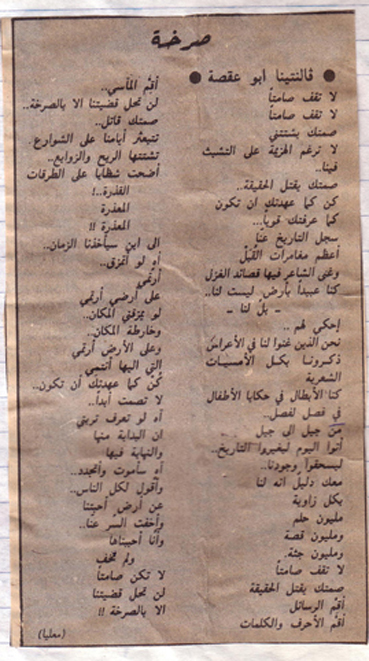 صرخة
● ڤالنتينا ابو عقصة ●
لا تقف صامتاً
لا تقف صامتاً
صمتك يشتتني
لا ترغم الهزيمة على التشبث
فينا..
صمتك يقتل الحقيقة..
كن كما عهدتك ان تكون
كما عرفتك قوياً...
سجل التاريخ عنا
أعظم مغامرات القُبَل
وغنى الشاعر فيها قصائد الغزل
كنا عبيداً بأرض ليست لنا..
- بل لنا -
إحكي لهم ..
نحن الذين غنوا لنا في الأعراس
ذكرونا بكل الأمسيات
الشعرية
كنا الأبطال في حكايا الأطفال
في فصل لفصل..
من جيل الى جيل
أتوا اليوم ليغيروا التاريخ..
ليسحقوا وجودنا..
معك دليل انه لنا
بكل زاوية
مليون حلم
ومليون قصة
ومليون جثة
لا تقف صامتاً
صمتك يقتل الحقيقة
أقم الرسائل
أقم الأحرف والكلمات
أقم المآسي..
لن تحل قضيتنا الا بالصرخة..
صمتك قاتل..
تتبعثر أيامنا على الشوارع
تشتتها الريح والزوابع..
أضحت شظايا على الطرقات
القذرة..!
المعذرة
المعذرة !!
الى اين سيأخذنا الزمان..
أه لو أتمزق..
أرتمي
على أرضي أرتمي
لو يمزقني المكان..
وخارطة المكان..
وعلى الأرض أرتمي
التي اليها أنتمي
كن كما عهدتك أن تكون..
لا تصمت أبداً..
أه لو تعرف تربتي
ان البداية منها
والنهاية فيها
أه سأموت وأتجدد..
وأقول لكل الناس..
عن أرض أحبتنا
وأخفت السر عنا..
وأنا أحببناها
ولم تخف
لا تكن صامتاً
لن تحل قضيتنا
الا بالصرخة !!
(معليا)